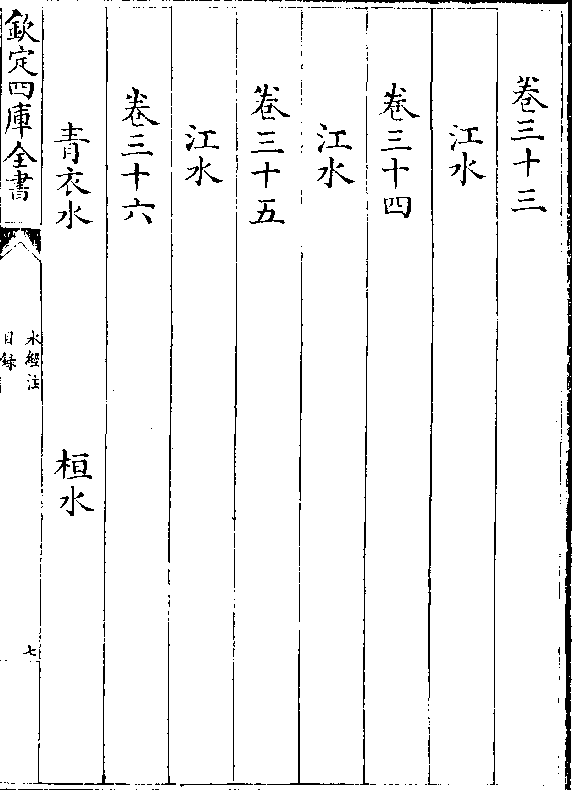 卷三十三
江水
卷三十四
江水
卷三十五
江水
卷三十六
青衣水 桓水
欽定四庫全書
水經注
目録
七